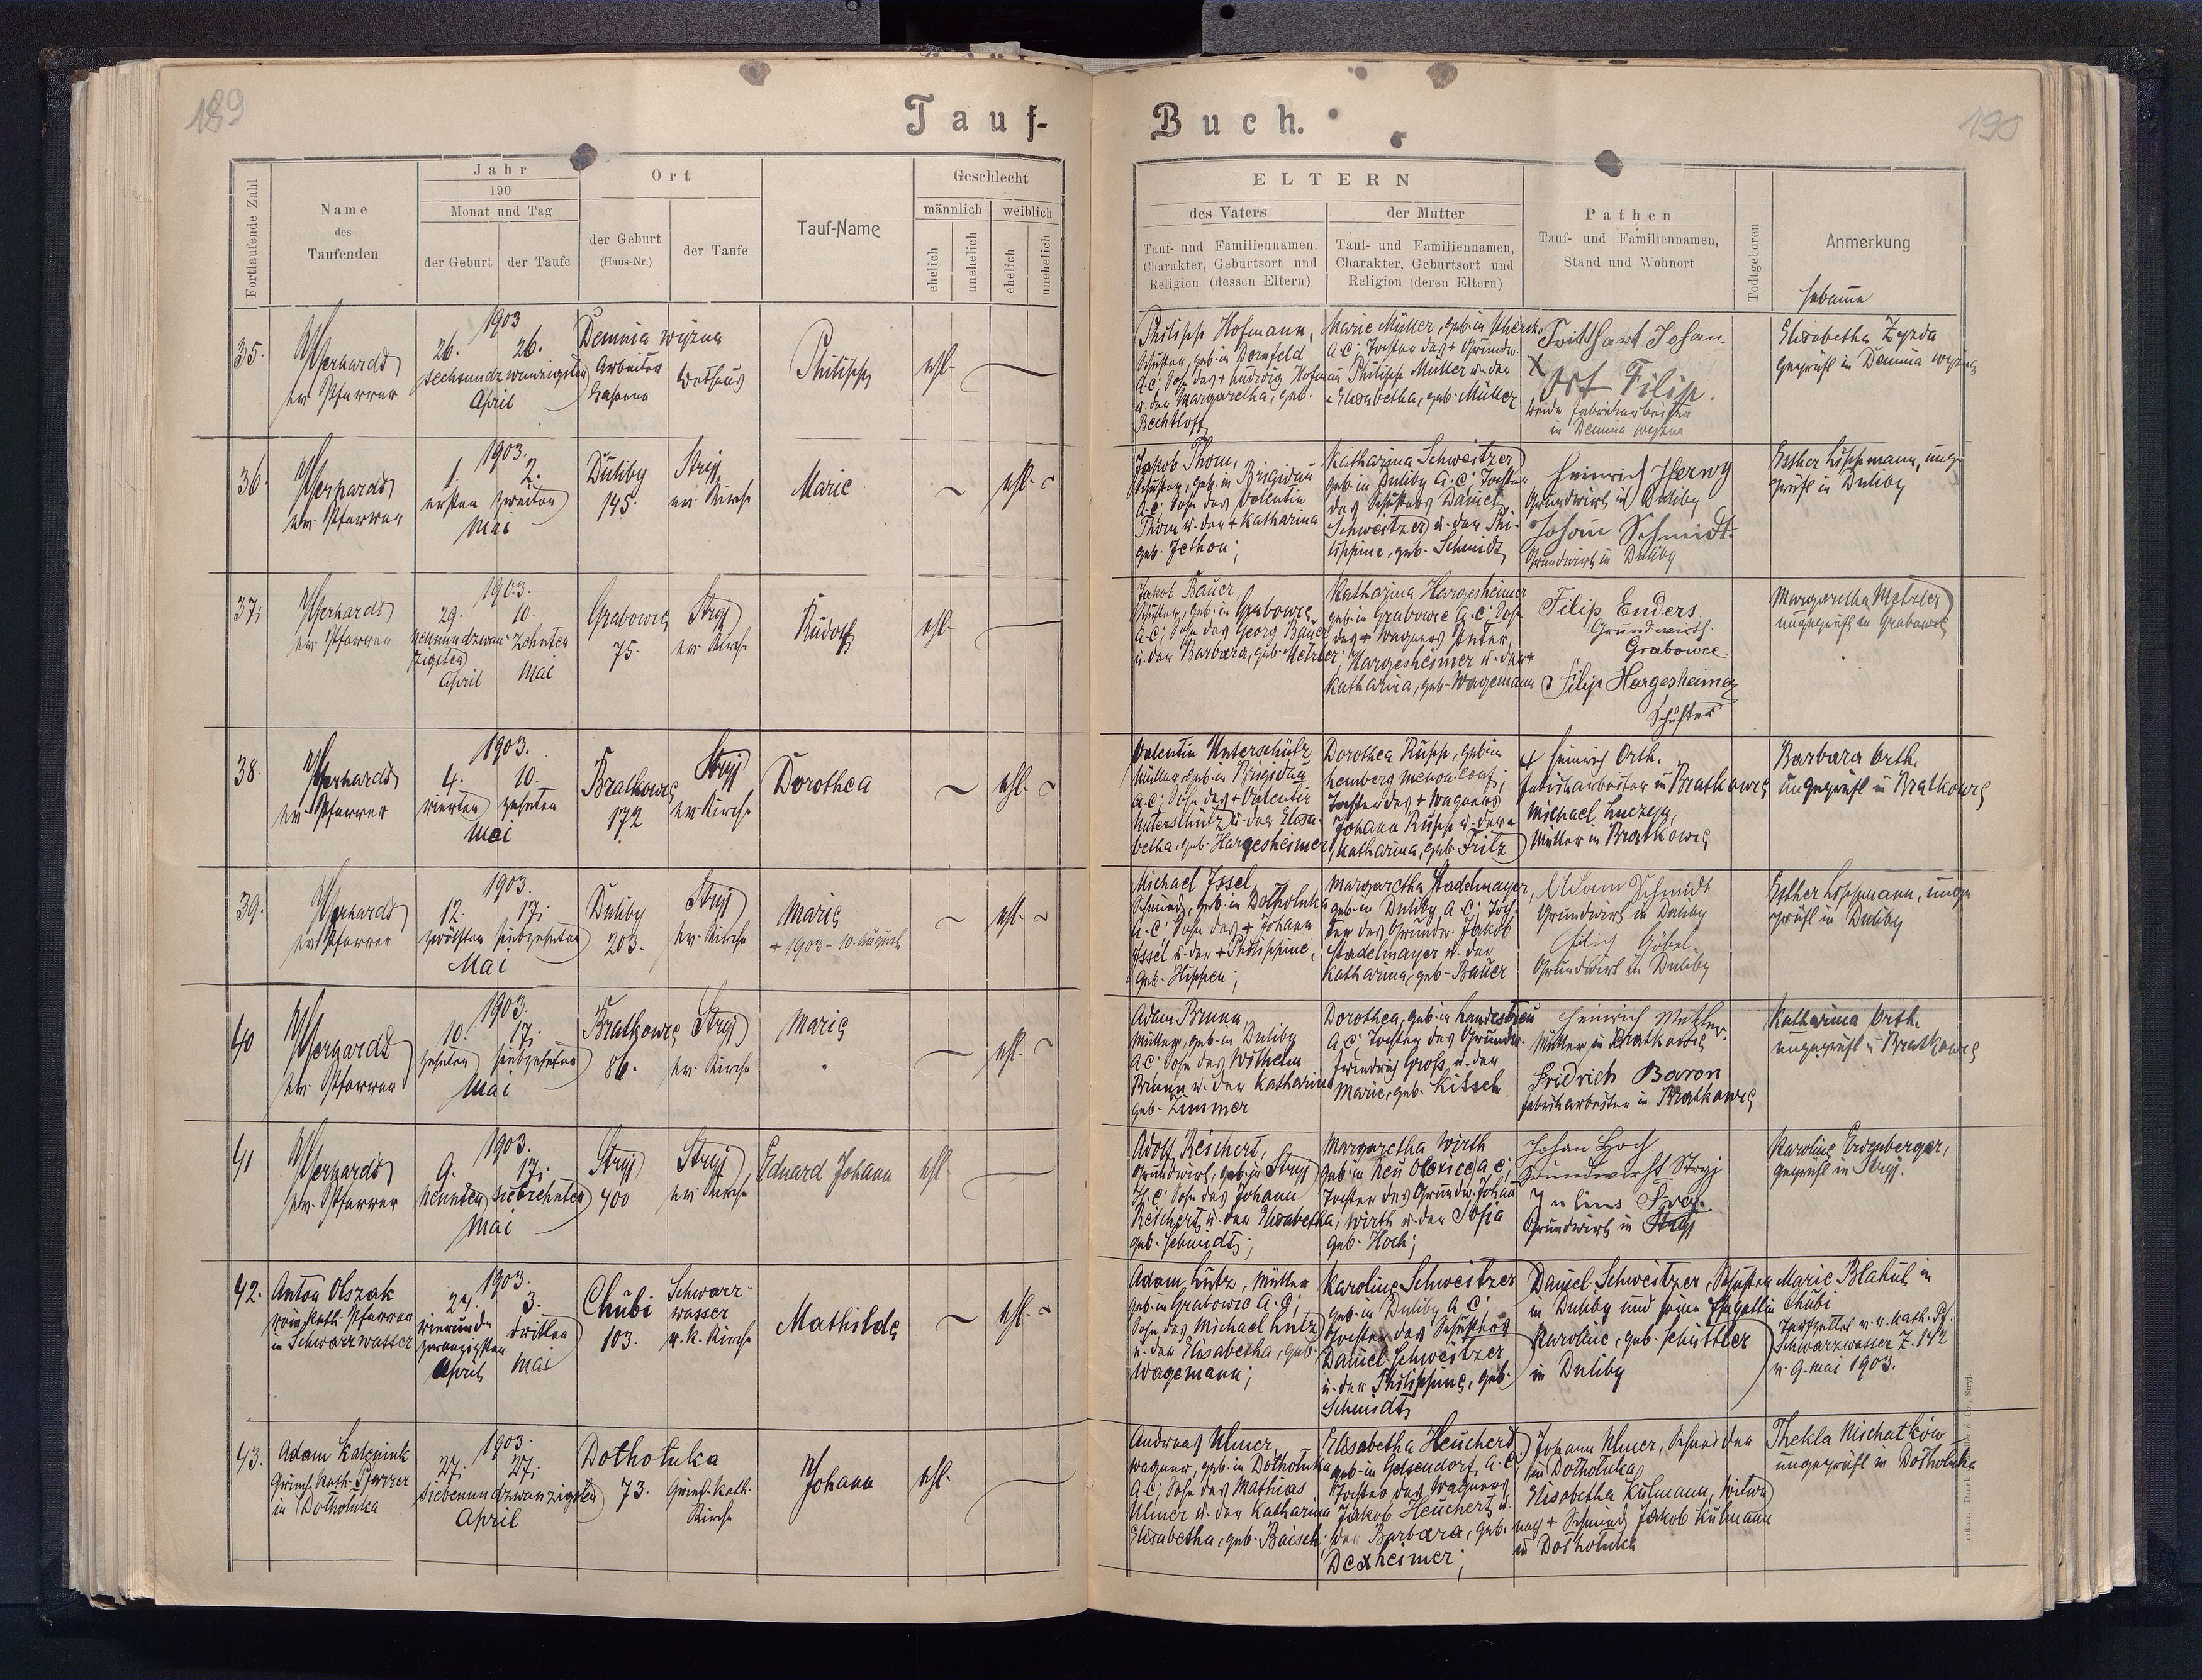 189
190
Tauf-
Buch.
Fortlaufende Zahl
Name
des
Taufenden
Jahr
190
Monat und Tag
der Geburt
der Taufe
Ort
der Geburt
(Haus-Nr.)
der Taufe
Tauf-Name
Geschlecht
männlich
weiblich
ehelich
unehelich
ehelich
unehelich
ELTERN
des Vaters
der Mutter
Tauf- und Familiennamen,
Charakter, Geburtsort und
Religion (dessen Eltern)
Tauf- und Familiennamen,
Charakter, Geburtsort und
Religion (deren Eltern)
Pathen
Tauf- und Familiennamen,
Stand und Wohnort
Todtgeboren
Anmerkung
Hebamme
35.
ev. Pfarrer
1903
26. 26.
sechsundzwanzigsten
April
Demnia wyzna
Arbeiter
Bethaus
Philipp
ehl.
Philipp Hofmann,
Schuster, geb. in Dornfeld
A.C; Sohn des + Ludwig Hofmann
u. der Margaretha, geb.
Bechtloff
Marie Müller, geb. in
A.C; Tochter des + Grundw.
Philipp Müller u. der
+ Elisabetha, geb. Müller
Johan
X
Ort Filip.
beide Fabriksarbeiter
in Demnia wyzna
Elisabetha Zyzda
geprüft in Demnia wyzna
36.
ev. Pfarrer
1903.
1. 2.
ersten zweiten
Mai
Duliby
145.
Stryj
ev. Kirche
Marie
ehl.
Jakob Thom,
Schuster, geb. in Brigidau
A.C; Sohn des Valentin
Thom u. der + Katharina
geb. Jethon;
Katharina Schweitzer
geb. in Duliby A.C; Tochter
des Schusters Daniel
Schweitzer u. der Phi-
lippine, geb. Schmidt
Heinrich Herwy
Grundwirth in Duliby
Johann Schmidt.
Grundwirth in Duliby
Esther Lippmann, unge-
prüft in Duliby
37.
ev. Pfarrer
1903.
29. 10.
neunundzwan- zehnten
zigsten
April Mai
Grabowce
75.
Stryj
ev. Kirche
Rudolf
ehl.
Jakob Bauer,
Schuster, geb. in Grabowce
A.C; Sohn des Georg Bauer
u. der Barbara, geb. Metzler;
Katharina Hargesheimer
geb. in Grabowce A.C; Toch.
des + Wagners Peter
Hargesheimer u. der +
Katharina, geb. Wagemann
Filip Enders
Grundwirth
Grabowce
Filip Hargesheimer
Schuster
Margaretha Metzler
ungeprüft in Grabowce
38.
ev. Pfarrer
1903.
4. 10.
vierten zehnten
Mai
Bratkowce
172
Stryj
ev. Kirche
Dorothea
ehl.
Valentin Unterschütz
Müller, geb. in Brigidau
A.C; Sohn des + Valentin
Unterschütz u. der Elisa-
betha, geb. Hargesheimer
Dorothea Rupp, geb. in
Lemberg menon. Conf;
Tochter des + Wagners
Johann Rupp u. der +
Katharina, geb. Fritz
Heinrich Orth.
Fabriksarbeiter in Bratkowce
Michael
Müller in Bratkowce
Barbara Orth,
ungeprüft in Bratkowce
39.
ev. Pfarrer
1903.
12. 17.
zwölften siebzehnten
Mai
Duliby
203.
Stryj
ev. Kirche
Marie
+ 1903 - 10. August
ehl.
Michael Issel
Schmied, geb. in Bolholuka
A.C; Sohn des + Johann
Issel u. der + Philippine,
geb. Hippen;
Margaretha Stadelmayer,
geb. in Duliby A.C; Toch-
ter des Grundw. Jakob
Stadelmayer u. der
Katharina, geb. Bauer
Adam Schmidt
Grundwirt in Duliby
Filip Göbel.
Grundwirt in Duliby
Esther Lippmann, unge
prüft in Duliby
40
ev. Pfarrer
1903.
10. 17.
zehnten siebzehnten
Mai
Bratkowce
86.
Stryj
ev. Kirche
Marie
ehl.
Adam Brunn,
Müller, geb. in Duliby
A.C; Sohn des Wilhelm
Brunn u. der Katharina
geb. Zimmer
Dorothea, geb. in Landestreu
A.C; Tochter des Grundw.
Friedrich Groß u. der
Marie, geb. Kitsch
Heinrich Metzler.
Müller in Bratkowce
Fridrich Baron
Fabriksarbeiter in Bratkowce
Katharina Orth,
ungeprüft in Bratkowce
41
ev. Pfarrer
1903.
9. 17.
neunten siebzehnten
Mai
Stryj
400
Stryj
ev. Kirche
Eduard Johann
ehl.
Adolf Reichert,
Grundwirt, geb. in Stryj
H.C; Sohn des Johann
Reichert u. der Elisabetha,
geb. Schmidt;
Margaretha Wirth
geb. in Neu Oleksice A.C;
Tochter des Grundw. Johann
Wirth u. der Sofia
geb. Hoch;
Johan Hoch
Grundwirth Stryj
Julius
Grundwirth in Stryj
Karoline Erdenberger,
geprüft in Stryj.
42.
Anton Olszak
röm. kath. Pfarrer
in Schwarzwasser
1903.
24. 3.
vierund- dritten
zwanzigsten
April Mai
Chubi
103.
Schwarz-
wasser
r. k. Kirche
Mathilde
ehl.
Adam Lutz, Müller
geb. in Grabowce A.C;
Sohn des Michael Lutz
u. der Elisabetha, geb.
Wagemann;
Karoline Schweitzer
geb. in Duliby A.C;
Tochter des Schusters
Daniel Schweitzer
u. der Philippine, geb.
Schmidt,
Daniel Schweitzer, Schuster
in Duliby und seine Ehegattin
Karoline, geb. Schüttler
in Duliby
Marie Blahut in
Chubi
Taufzettel v. r. kath. Pf.
Schwarzwasser Z. 142
v. 9. Mai 1903.
43.
Adam
Griech. kath. Pfarrer
in Dolholuka
1903.
27. 27.
siebenundzwanzigsten
April
Dolholuka
73.
Griech. kath.
Kirche
Johann
ehl.
Andreas Ulmer,
Wagner, geb. in Dolholuka
A.C; Sohn des Mathias
Ulmer u. der Katharina
Elisabetha, geb. Baisch;
Elisabetha Heuchert
geb. in Gelsendorf A.C;
Tochter des Wagners
Jakob Heuchert u.
der Barbara, geb.
Dexheimer;
Johann Ulmer, Schneider
in Dolholuka,
Elisabetha Kulmann, Witwe
nach + Schmied Jakob Kulmann
in Dolholuka
Thekla Michatkow
ungeprüft in Dolholuka